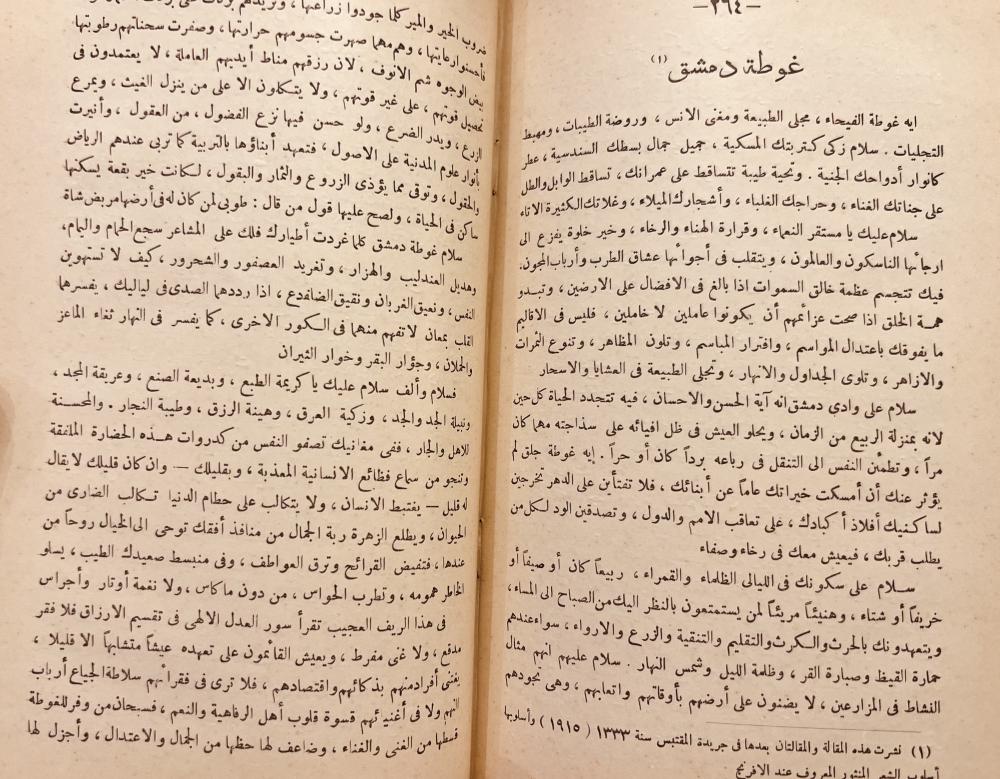 — ٣٦٤ —
غوطة دمشق (١)
ايه غوطة الفيحاء ، مجلى الطبيعة ومغنى الانس ، وروضة الطيبات ، ومهبط
التجليات . سلام زكى كتربتك المسكية ، جميل جمال بسطك السندسية ، عطر
كانوار أدواحك الجنية . وتحية طيبة تتساقط على عمرانك ، تساقط الوابل والطل
على جناتك الغناء ، وحراجك الغلباء ، وأشجارك الميلاء ، وغلاتك الكثيرة الاتاء
سلام عليك يا مستقر النعماء ، وقرارة الهناء والرخاء ، وخير خلوة يفزع الى
ارجائها الناسكون والعالمون ، ويتقلب فى أجوائها عشاق الطرب وأرباب المجون.
فيك تتجسم عظمة خالق السموات اذا بالغ فى الافضال على الارضين ، وتبدو
همة الخلق اذا صحت عزائمهم أن يكونوا عاملين لا خاملين ، فليس فى الاقاليم
ما يفوقك باعتدال المواسم ، وافترار المباسم ، وتلون المظاهر ، وتنوع الثمرات
والازاهر ، وتلوى الجداول والانهار ، وتجلى الطبيعة فى العشايا والاسحار
سلام على وادى دمشق انه آية الحسن والاحسان ، فيه تتجدد الحياة كل حين
لانه بمنزلة الربيع من الزمان ، ويحلو العيش فى ظل افيائه على سذاجته مهما كان
مراً ، وتطمئن النفس الى التنقل فى رباعه برداً كان أو حراً . إيه غوطة جلق لم
يؤثر عنك أن أمسكت خيراتك عاماً عن أبنائك ، فلا تفتأين على الدهر تخرجين
لساكنيك أفلاذ أكبادك ، على تعاقب الامم والدول ، وتصدقين الود لكل من
يطلب قربك ، فيعيش معك فى رخاء وصفاء
سلام على سكونك فى الليالى الظلماء والقمراء ، ربيعاً كان أو صيفاً أو
خريفاً أو شتاء ، وهنيئاً مريئاً لمن يستمتعون بالنظر اليك من الصباح الى المساء ،
ويتعهدونك بالحرث والكرث والتقليم والتنقية والزرع والارواء ، سواء عندهم
حمارة القيظ وصبارة القر ، وظلمة الليل وشمس النهار . سلام عليهم انهم مثال
النشاط فى المزارعين ، لا يضنون على أرضهم بأوقاتهم واتعابهم ، وهى تجودهم
(١) نشرت هذه المقالة والمقالتان بعدها فى جريدة المقتبس سنة ١٣٣٣ ( ١٩١٥ ) وأسلوبها
أسلوب الشعر المنثور المعروف عند الافرنج
ضروب الخير والمير كلما جودوا زراعتها ،
فأحسنوا رعايتها ، وهم مهما صهرت جسومهم حرارتها ، وصفرت سحناتهم رطوبتها
بيض الوجوه شم الانوف ، لان رزقهم مناط أيديهم العاملة ، لا يعتمدون فى
تحصيل قوتهم ، على غير قوتهم ، ولا يتكلون الا على من ينزل الغيث ، ويمرع
الزرع ، ويدر الضرع ، ولو حسن فيها نزع الفضول ، من العقول ، وأنيرت
بأنوار علوم المدنية على الاصول ، فتعهد أبناؤها بالتربية كما تربى عندهم الرياض
والحقول ، وتوقى مما يؤذى الزروع والثمار والبقول ، لكانت خير بقعة يسكنها
ساكن فى الحياة ، ولصح عليها قول من قال : طوبى لمن كان له فى أرضها مربض شاة
سلام غوطة دمشق كلما غردت أطيارك فلك على المشاعر سجع الحمام واليمام ،
وهديل العندليب والهزار ، وتغريد العصفور والشحرور ، كيف لا تستهوين
النفس ، ونعيق الغربان ونقيق الضفادع ، اذا رددهما الصدى فى لياليك ، يفسرهما
القلب بمعان لا تفهم منهما فى الكور الاخرى ، كما يفسر فى النهار ثغاء الماعز
والحملان ، وجؤار البقر وخوار الثيران
فسلام وألف سلام عليك يا كريمة الطبع ، وبديعة الصنع ، وعريقة المجد ،
ونبيلة الجد والجد ، وزكية العرق ، وهينة الرزق ، وطيبة النجار . والمحسنة
للاهل والجار ، ففى مغانيك تصفو النفس من كدورات هذه الحضارة الملفقة
وتنجو من سماع فظائع الانسانية المعذبة ، وبقليلك — وان كان قليلك لا يقال
له قليل — يغتبط الانسان ، ولا يتكالب على حطام الدنيا تكالب الضارى من
الحيوان ، ويطلع الزهرة ربة الجمال من منافذ أفقك توحى الى الخيال روحاً من
عندها ، فتفيض القرائح وترق العواطف ، وفى منبسط صعيدك الطيب ، يسلو
الخاطر همومه ، وتطرب الحواس ، من دون ما كاس ، ولا نغمة أوتار وأجراس
فى هذا الريف العجيب تقرأ سور العدل الالهى فى تقسيم الارزاق فلا فقر
مدقع ، ولا غنى مفرط ، ويعيش القائمون على تعهده عيشاً متشابهاً الا قليلا ،
يغتنى أفراد منهم بذكائهم واقتصادهم ، فلا ترى فى فقرائهم سلاطة الجياع أرباب
النهم ولا فى أغنيائهم قسوة قلوب أهل الرفاهية والنعم ، فسبحان من وفر للغوطة
قسطها من الغنى والغناء ، وضاعف لها حظها من الجمال والاعتدال ، وأجزل لها